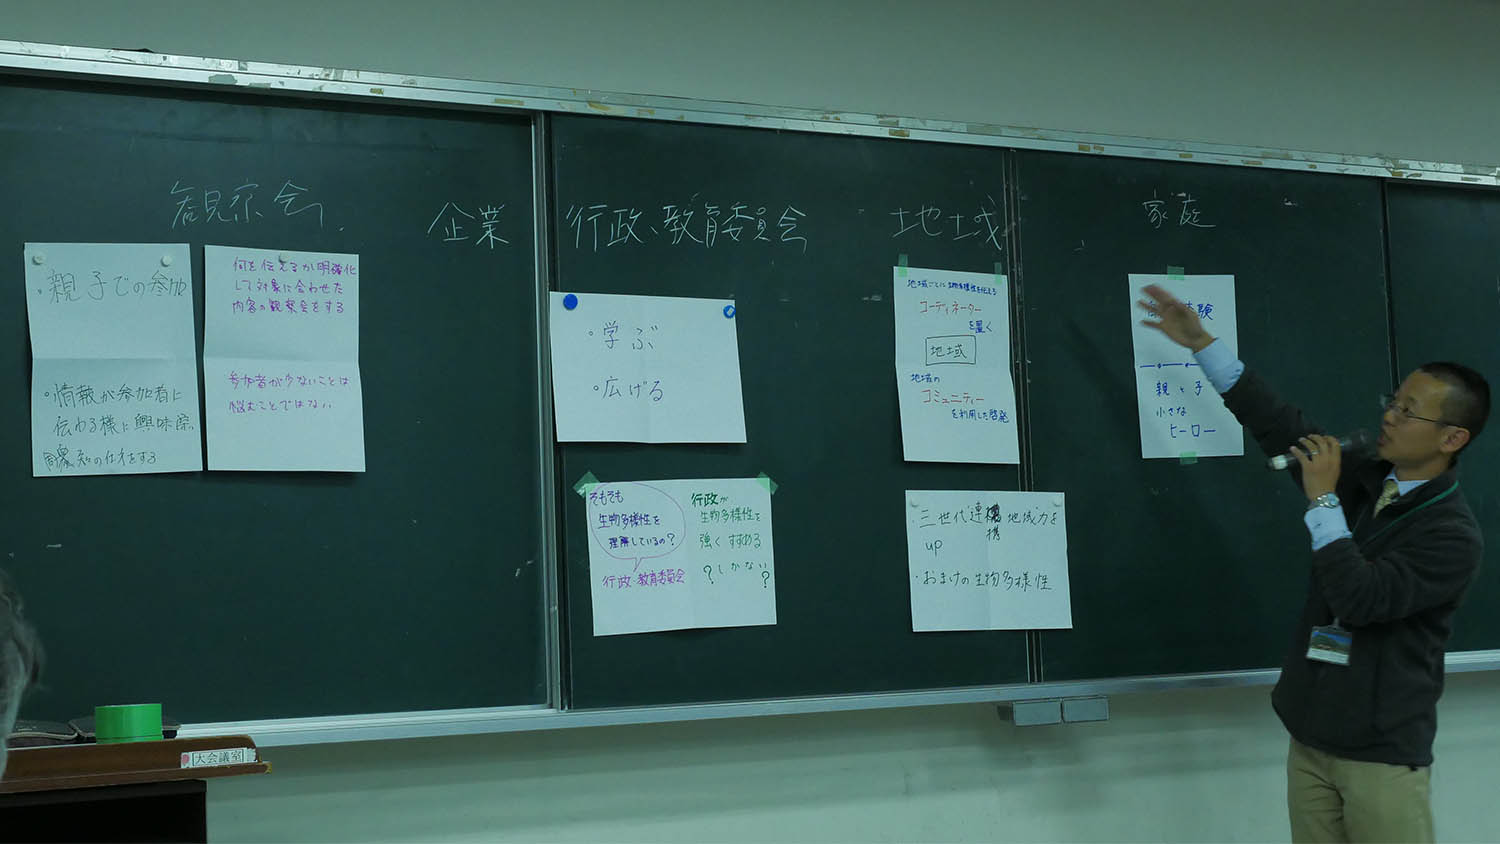 観察会
企業
行政、教育委員会
地域
家庭
・親子での参加
・情報が参加者に
伝わる様に興味深い
知の仕方をする
何を伝えるか明確化
して対象に合わせた
内容の観察会をする
参加者が少ないことは
悩むことではない
・学ぶ
・広げる
そもそも
生物多様性を
理解しているの?
行政・教育委員会
行政が
生物多様性を
強くすすめる
?しかない?
地域ごとに生物多様性を伝える
コーディネーター
を置く
地域
地域の
コミュニティー
を利用した啓発
・三世代連携 地域力を
up
・おまけの生物多様性
体験
親と子
小さな
ヒーロー
大会議室